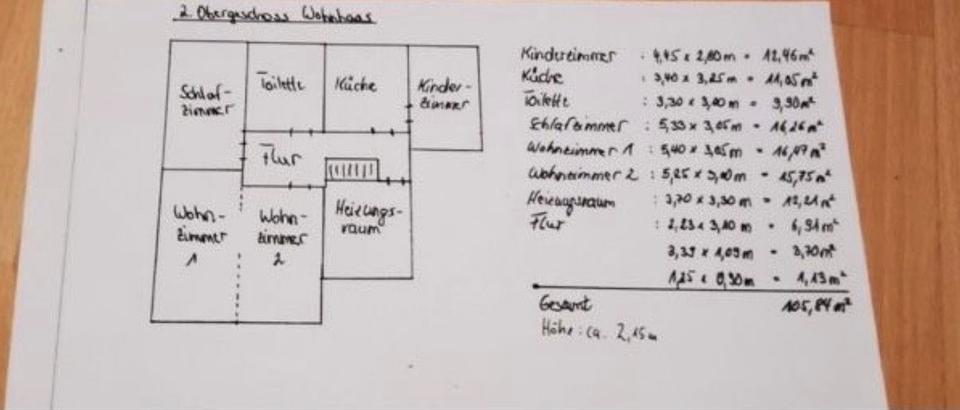 2. Obergeschoss Wohnhaus
Schlaf-
zimmer
Toilette
Küche
Kinder-
zimmer
Flur
Wohn-
zimmer
1
Wohn-
zimmer
2
Heizungs-
raum
Kinderzimmer : 4,45 x 2,80 m = 12,46 m²
Küche : 3,40 x 3,25 m = 11,05 m²
Toilette : 3,30 x 3,00 m = 9,90 m²
Schlafzimmer : 5,33 x 3,05 m = 16,26 m²
Wohnzimmer 1 : 5,40 x 3,05 m = 16,47 m²
Wohnzimmer 2 : 5,25 x 3,00 m = 15,75 m²
Heizungsraum : 3,70 x 3,30 m = 12,21 m²
Flur : 2,23 x 3,10 m = 6,91 m²
3,39 x 1,09 m = 3,70 m²
1,25 x 0,90 m = 1,13 m²
Gesamt 105,84 m²
Höhe: ca. 2,15 m